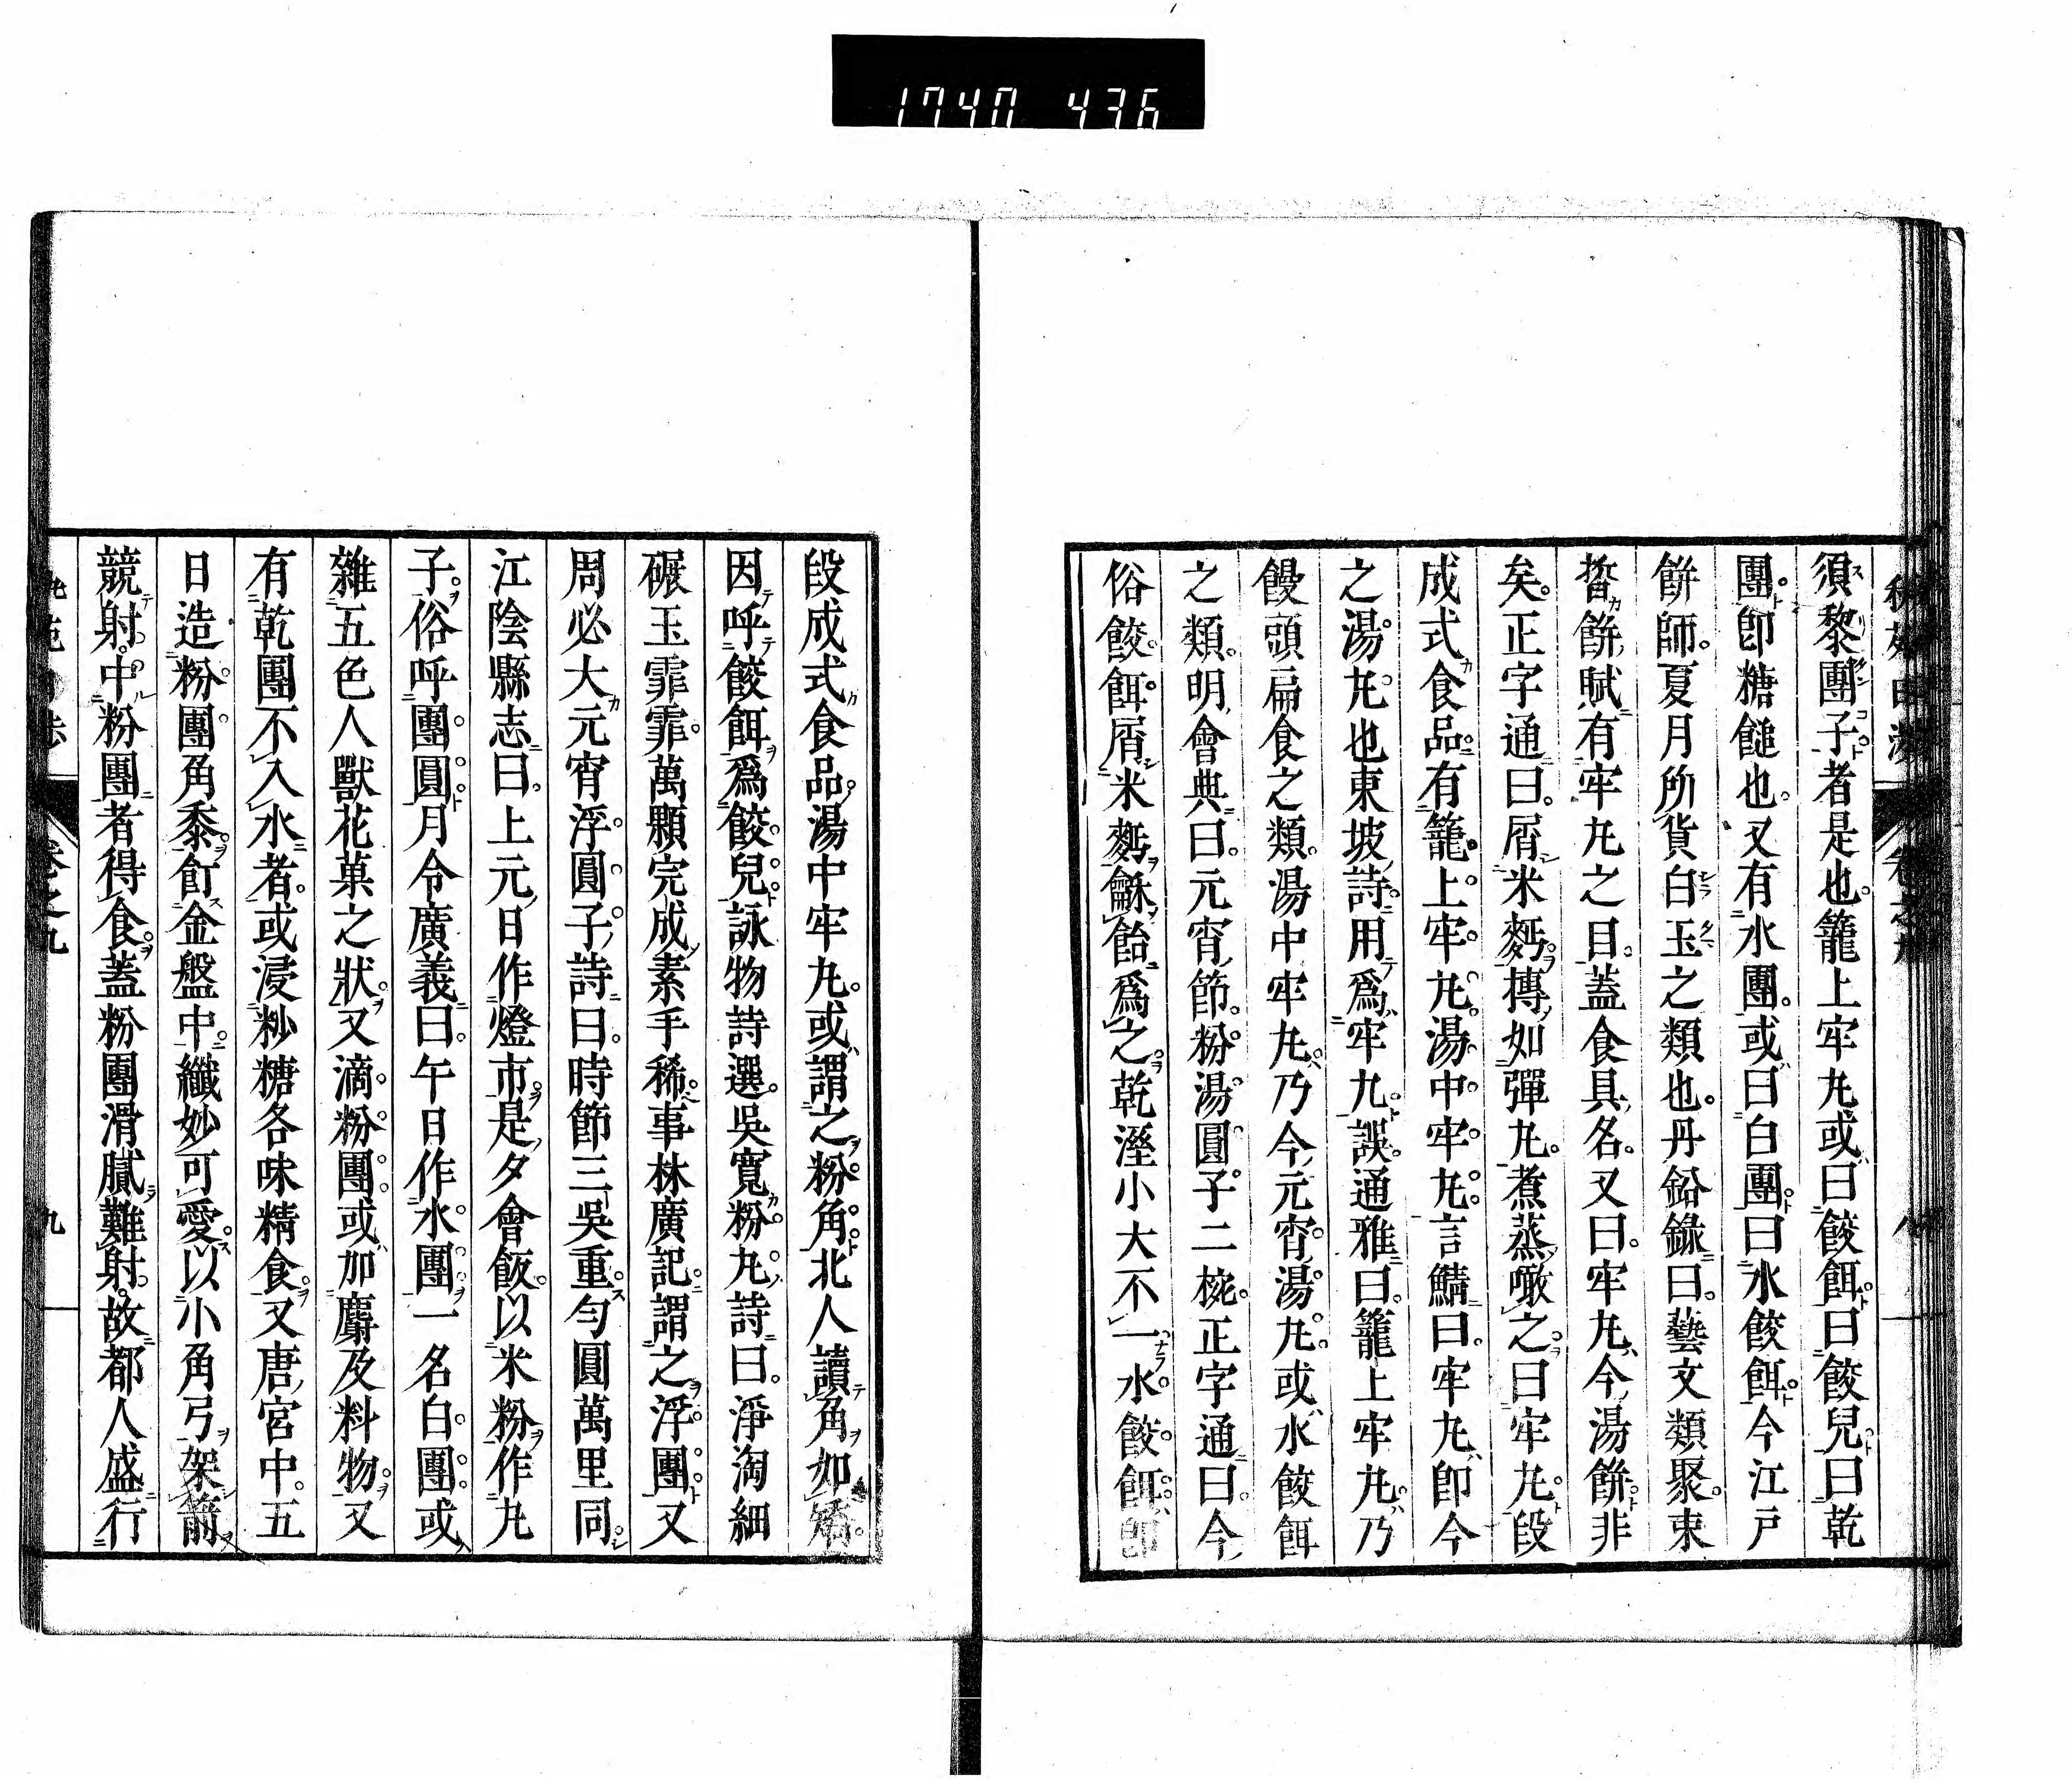 1740 436
須黎團子者是也籠上牢九或曰餃餌曰餃兒曰乾
團卽糖䭔也又有水團或曰白團曰水餃餌今江戸
餅師夏月所貨白玉之類也丹鉛錄曰藝文類聚束
晳餅賦有牢九之目蓋食具名又曰牢九今湯餅非
矣正字通曰屑米麪摶如彈丸煮蒸噉之曰牢丸段
成式食品有籠上牢丸湯中牢丸言鯖曰牢九卽今
之湯丸也東坡詩用爲牢九誤通雅曰籠上牢丸乃
饅頭扁食之類湯中牢丸乃今元宵湯丸或水餃餌
之類明會典曰元宵節粉湯圓子二椀正字通曰今
俗餃餌屑米麪龢飴爲之乾溼小大不一水餃餌卽
段成式食品湯中牢丸或謂之粉角北人讀角如矯
因呼餃餌爲餃兒詠物詩選吳寬粉丸詩曰淨淘細
碾玉霏霏萬顆完成素手稀事林廣記謂之浮團又
周必大元宵浮圓子詩曰時節三吳重勻圓萬里同
江陰縣志曰上元日作燈市是夕會飯以米粉作丸
子俗呼團圓月令廣義曰午日作水團一名白團或
雜五色人獸花菓之狀又滴粉團或加麝及料物又
有乾團不入水者或浸粆糖各味精食又唐宮中五
日造粉團角黍飣金盤中纖妙可愛以小角弓架箭
競射中粉團者得食蓋粉團滑膩難射故都人盛行
卷之九
九